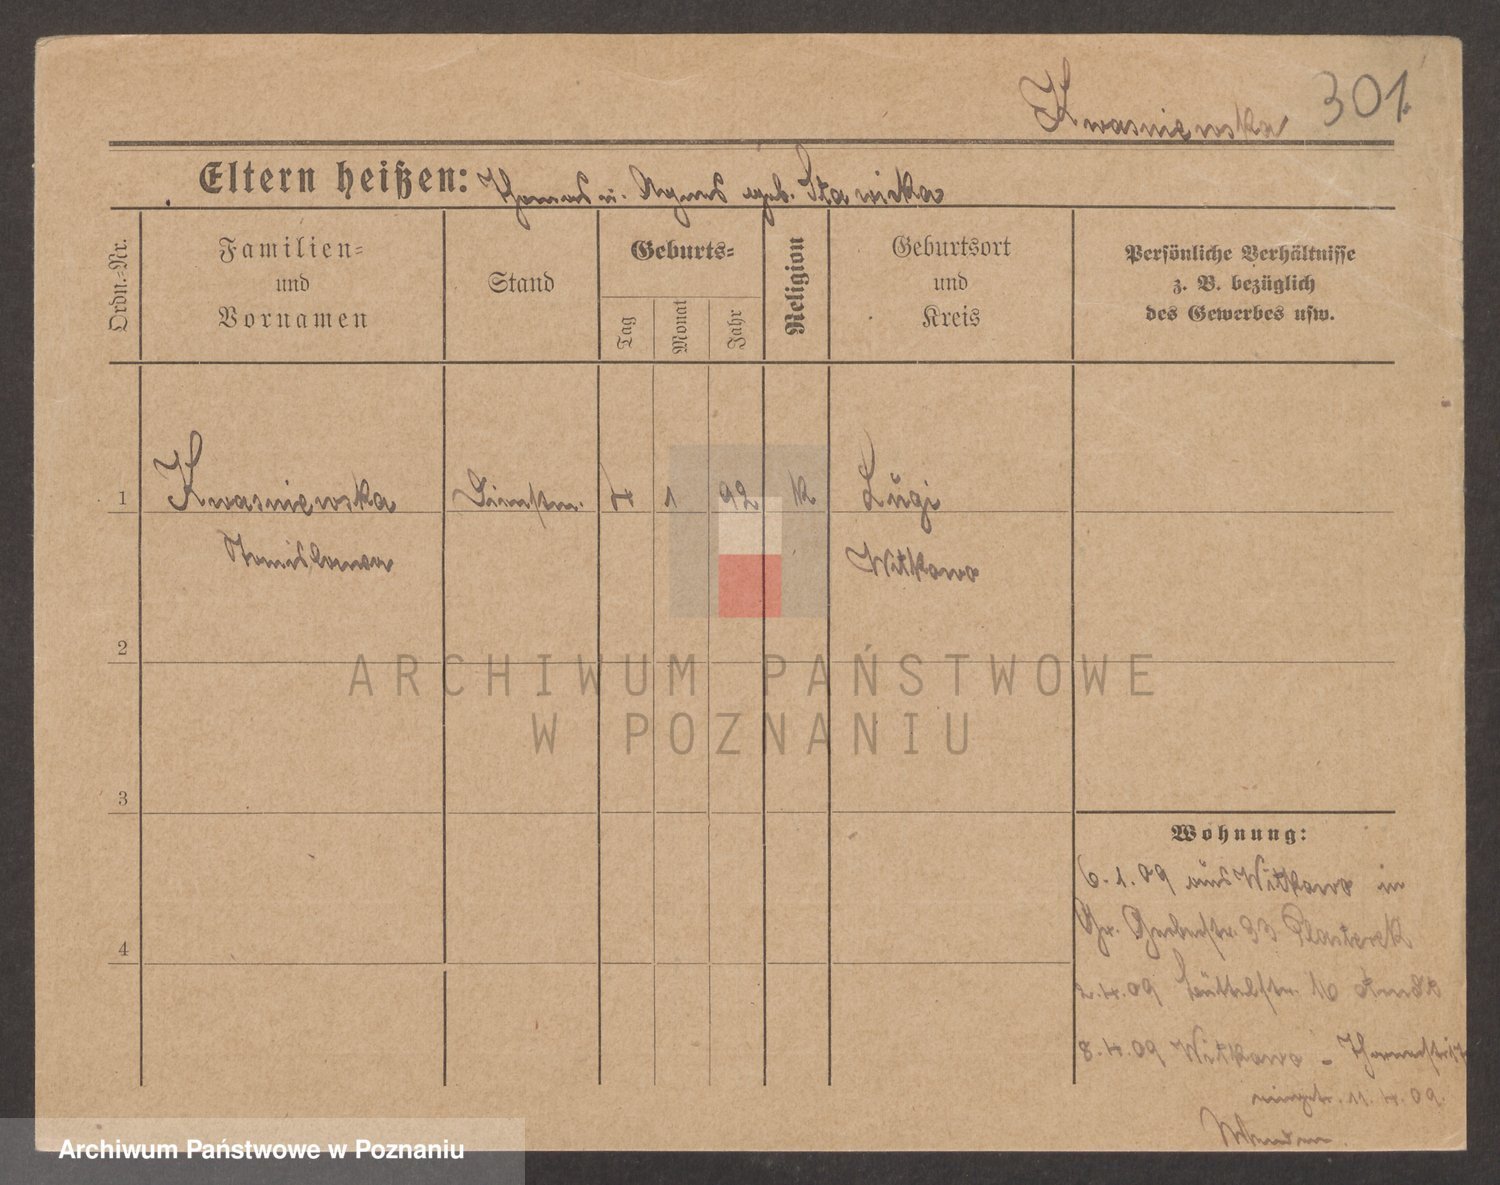 Kwasniewska 301.
Eltern heißen: Thomas u. Agnes geb. Stawicka
Ordn.=Nr.
Familien=
und
Vornamen
Stand
Geburts=
Tag
Monat
Jahr
Religion
Geburtsort
und
Kreis
Persönliche Verhältnisse
z. B. bezüglich
des Gewerbes usw.
1 Kwasniewska Dienstm. 4 1 92 K Lugi
Stanislawa Witkowo
2
ARCHIWUM PAŃSTWOWE
W POZNANIU
3
Wohnung:
6.1.09 aus Witkowo in
Gr. Gerberstr. 33
4
2.4.09 16
8.4.09 Witkowo -
11.4.09.
Archiwum Państwowe w Poznaniu